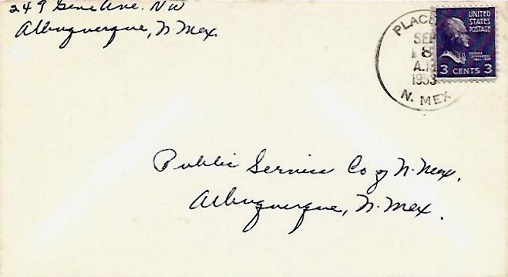 249 Gene Ave. NW
Albuquerque, N. Mex.
PLAC
SEP
8
A.M
1953
N. MEX
UNITED
STATES
POSTAGE
3 CENTS 3
Public Service Co of N. Mex.
Albuquerque, N. Mex.